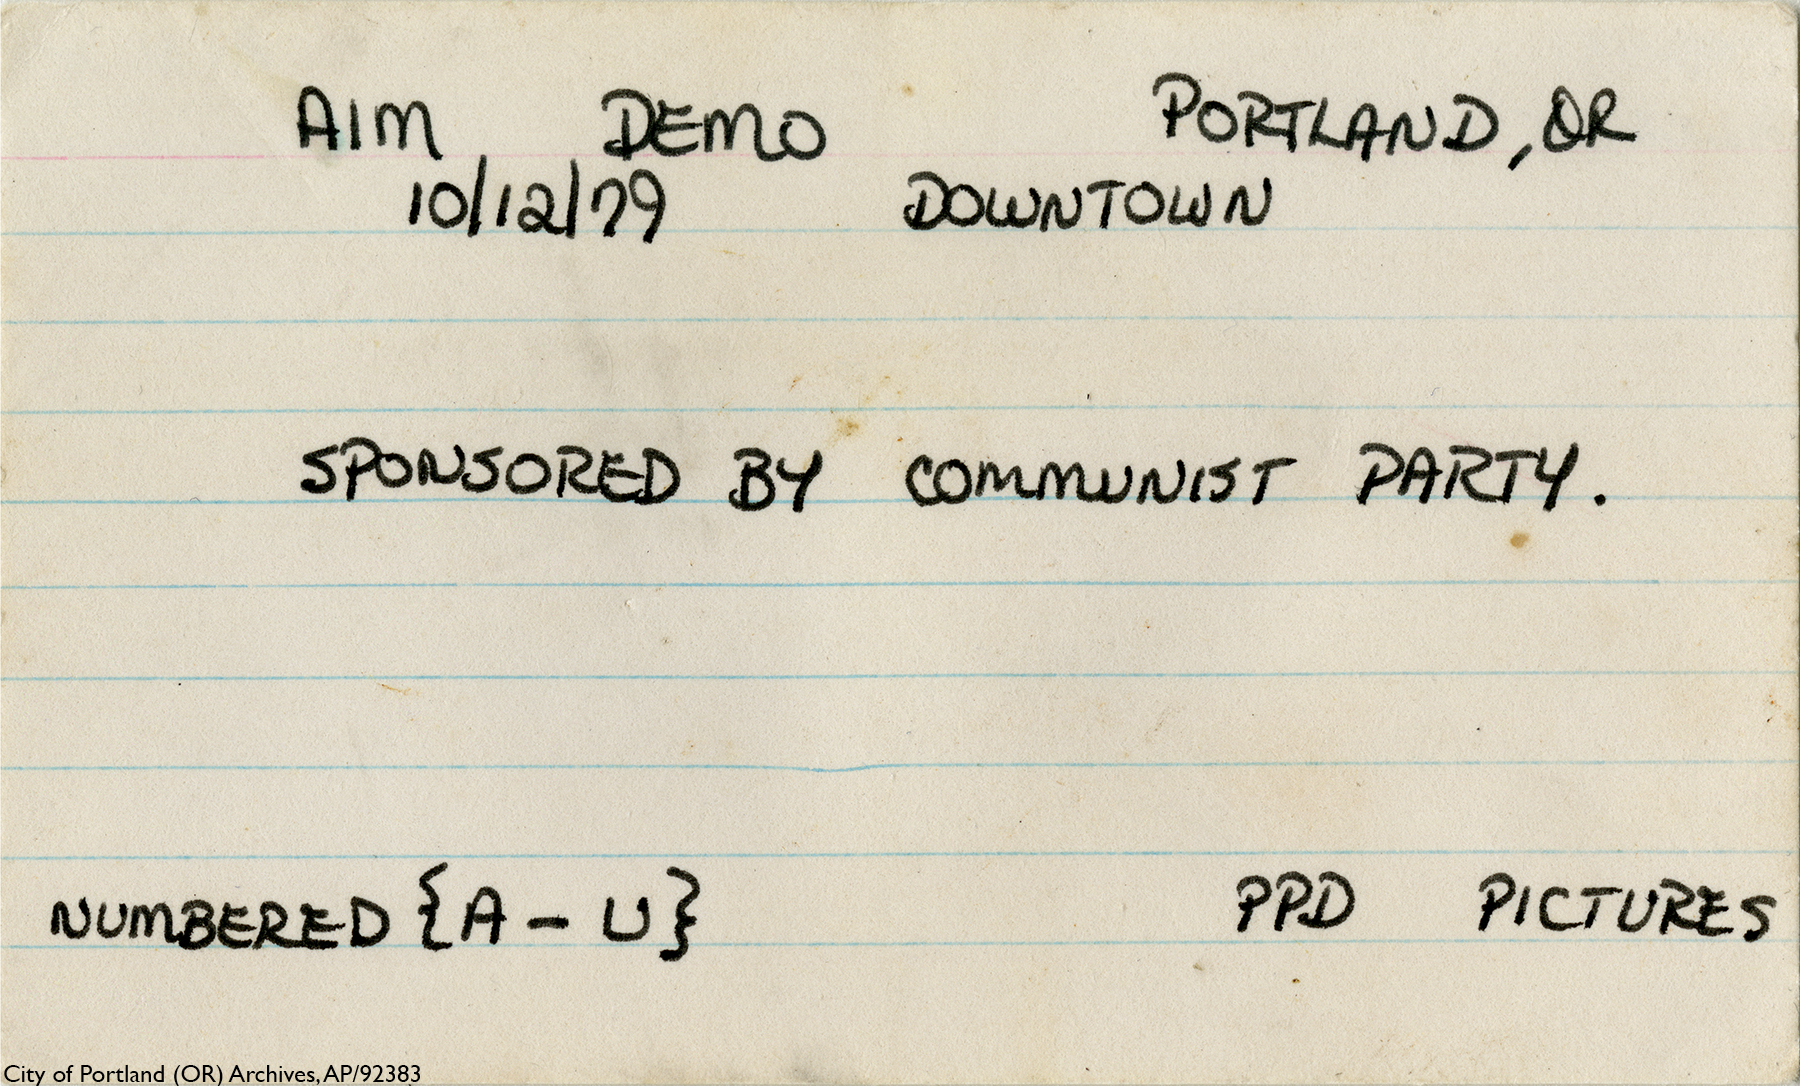 AIM DEMO PORTLAND, OR
10/12/79 DOWNTOWN
SPONSORED BY COMMUNIST PARTY.
NUMBERED {A - U} PPD PICTURES
City of Portland (OR) Archives, AP/92383